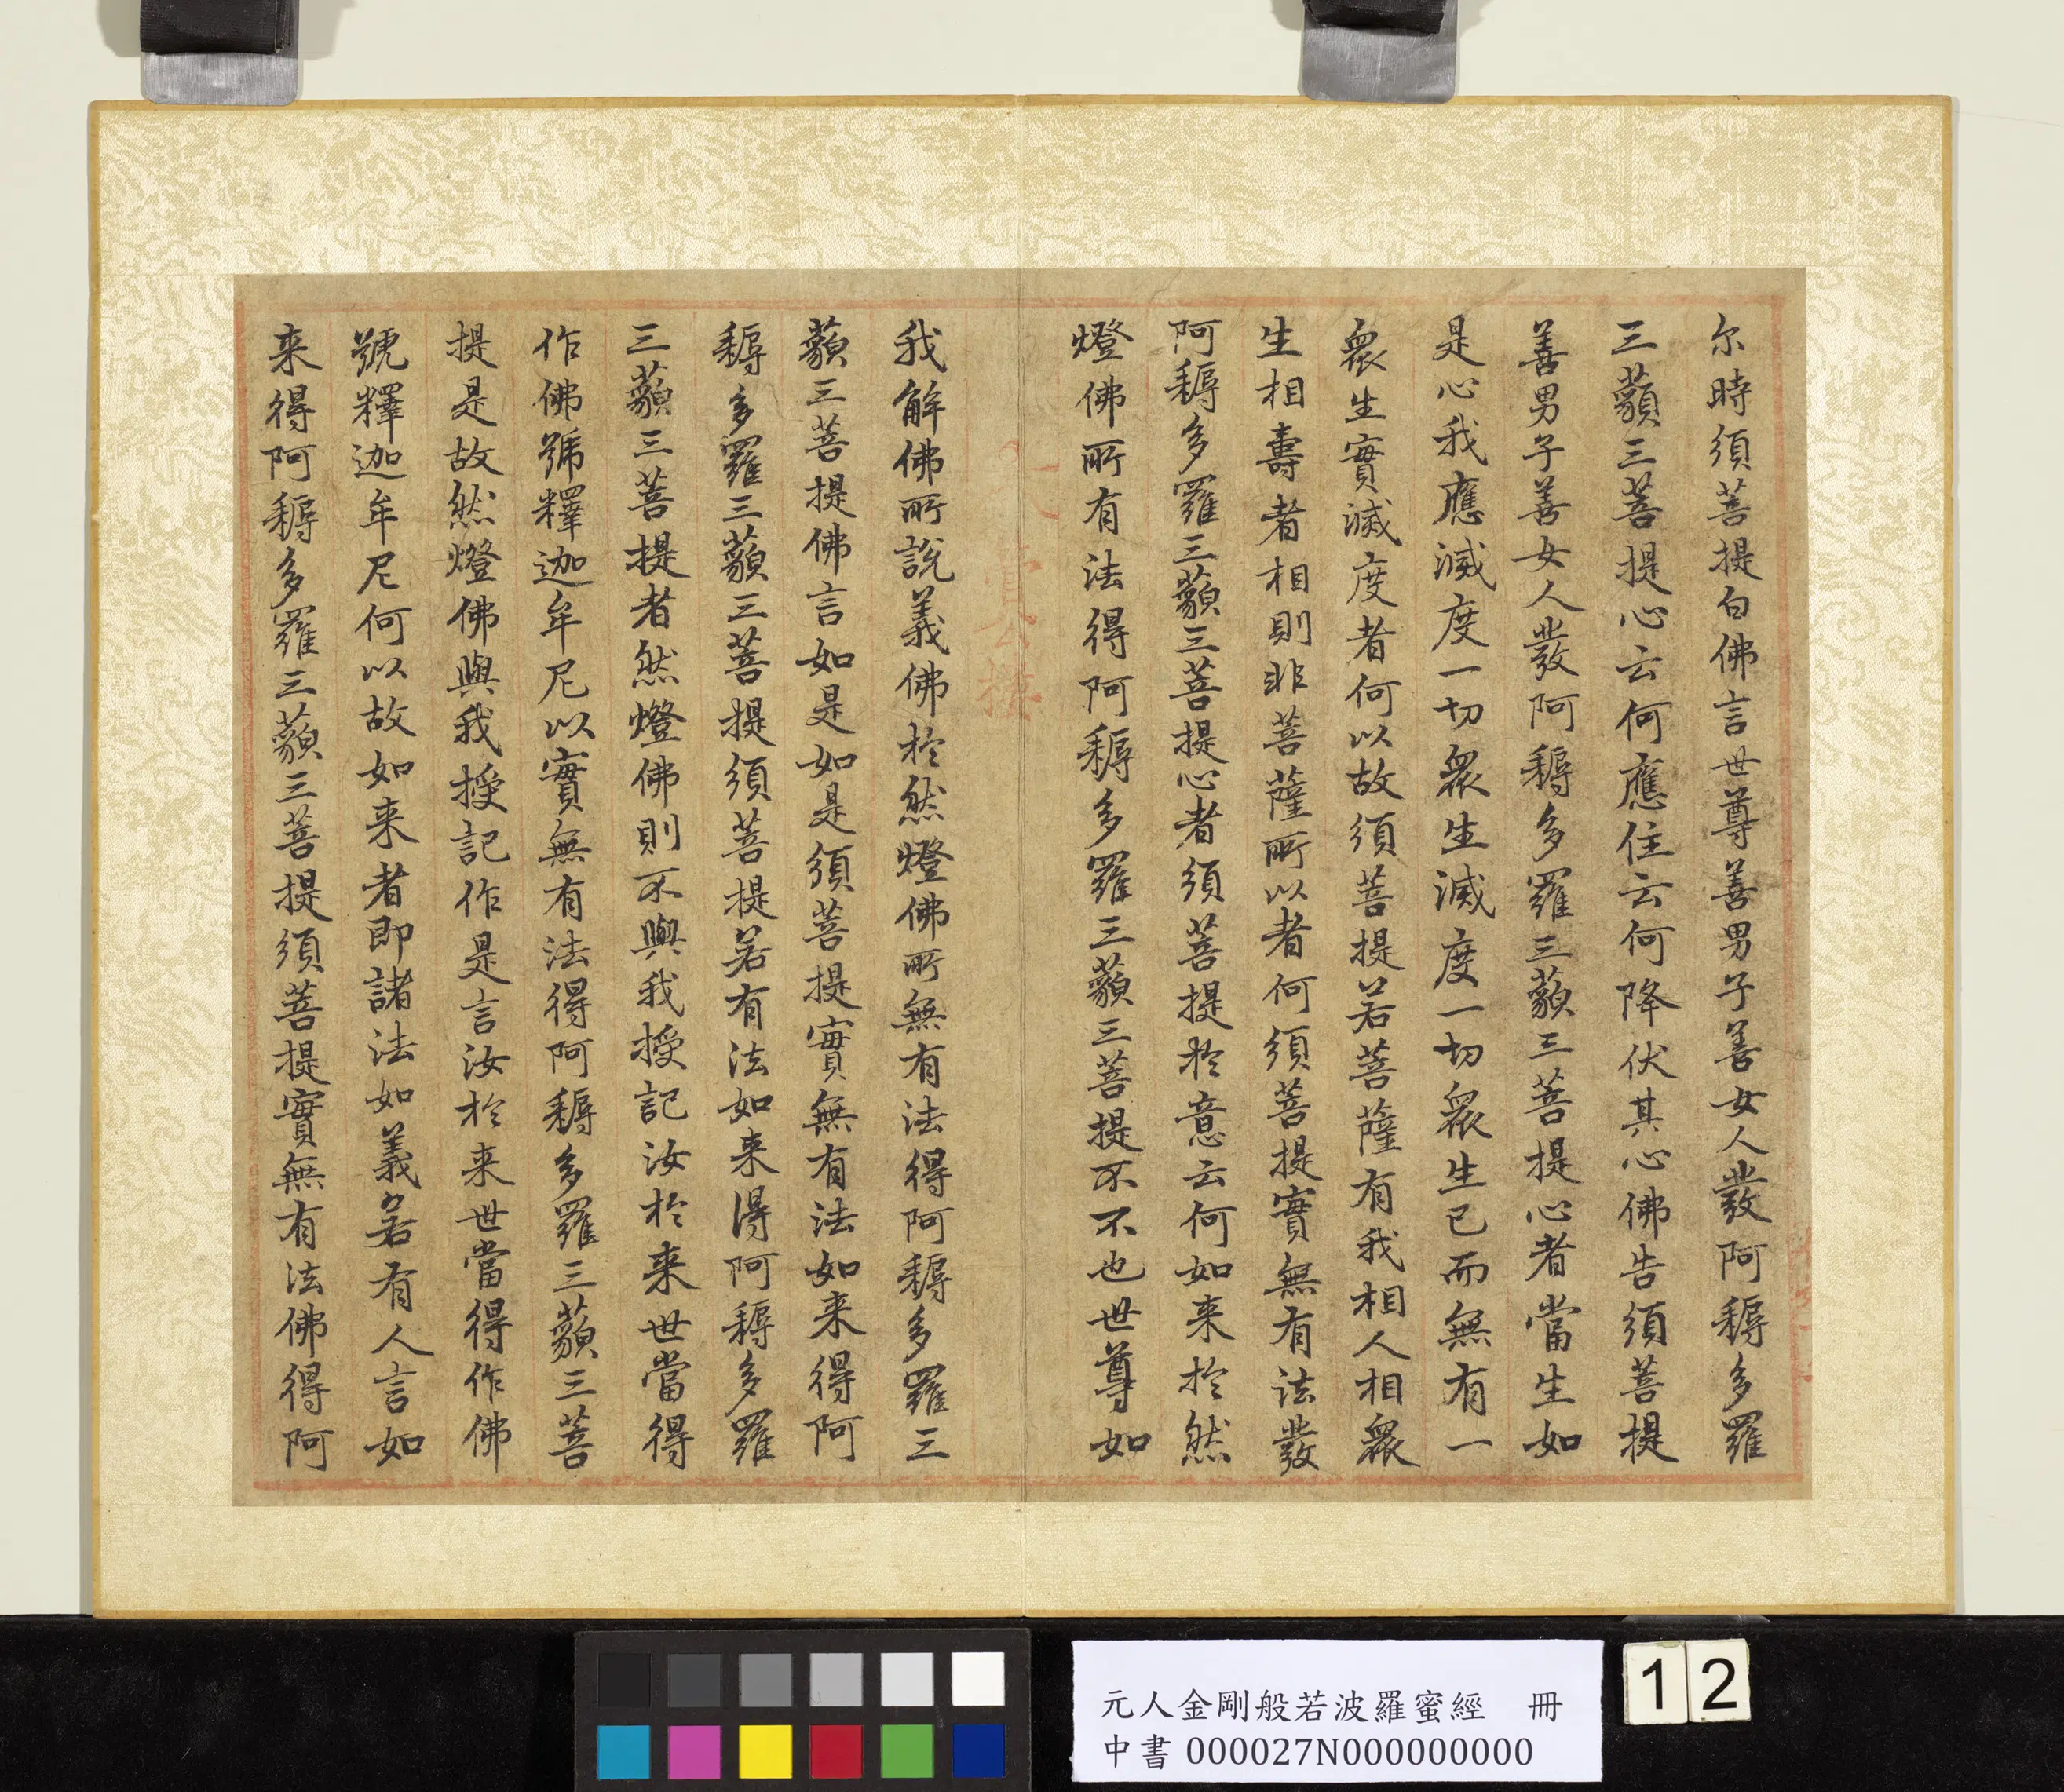 尔時須菩提白佛言世尊善男子善女人發阿耨多羅
三藐三菩提心云何應住云何降伏其心佛告須菩提
善男子善女人發阿耨多羅三藐三菩提心者當生如
是心我應滅度一切眾生滅度一切眾生已而無有一
眾生實滅度者何以故須菩提若菩薩有我相人相眾
生相壽者相則非菩薩所以者何須菩提實無有法發
阿耨多羅三藐三菩提心者須菩提於意云何如来於然
燈佛所有法得阿耨多羅三藐三菩提不不也世尊如
我解佛所說義佛於然燈佛所無有法得阿耨多羅三
藐三菩提佛言如是如是須菩提實無有法如来得阿
耨多羅三藐三菩提須菩提若有法如来得阿耨多羅
三藐三菩提者然燈佛則不與我授記汝於来世當得
作佛號釋迦牟尼以實無有法得阿耨多羅三藐三菩
提是故然燈佛與我授記作是言汝於来世當得作佛
號釋迦牟尼何以故如来者即諸法如義若有人言如
来得阿耨多羅三藐三菩提須菩提實無有法佛得阿
元人金剛般若波羅蜜經 冊
中書 000027N000000000
12